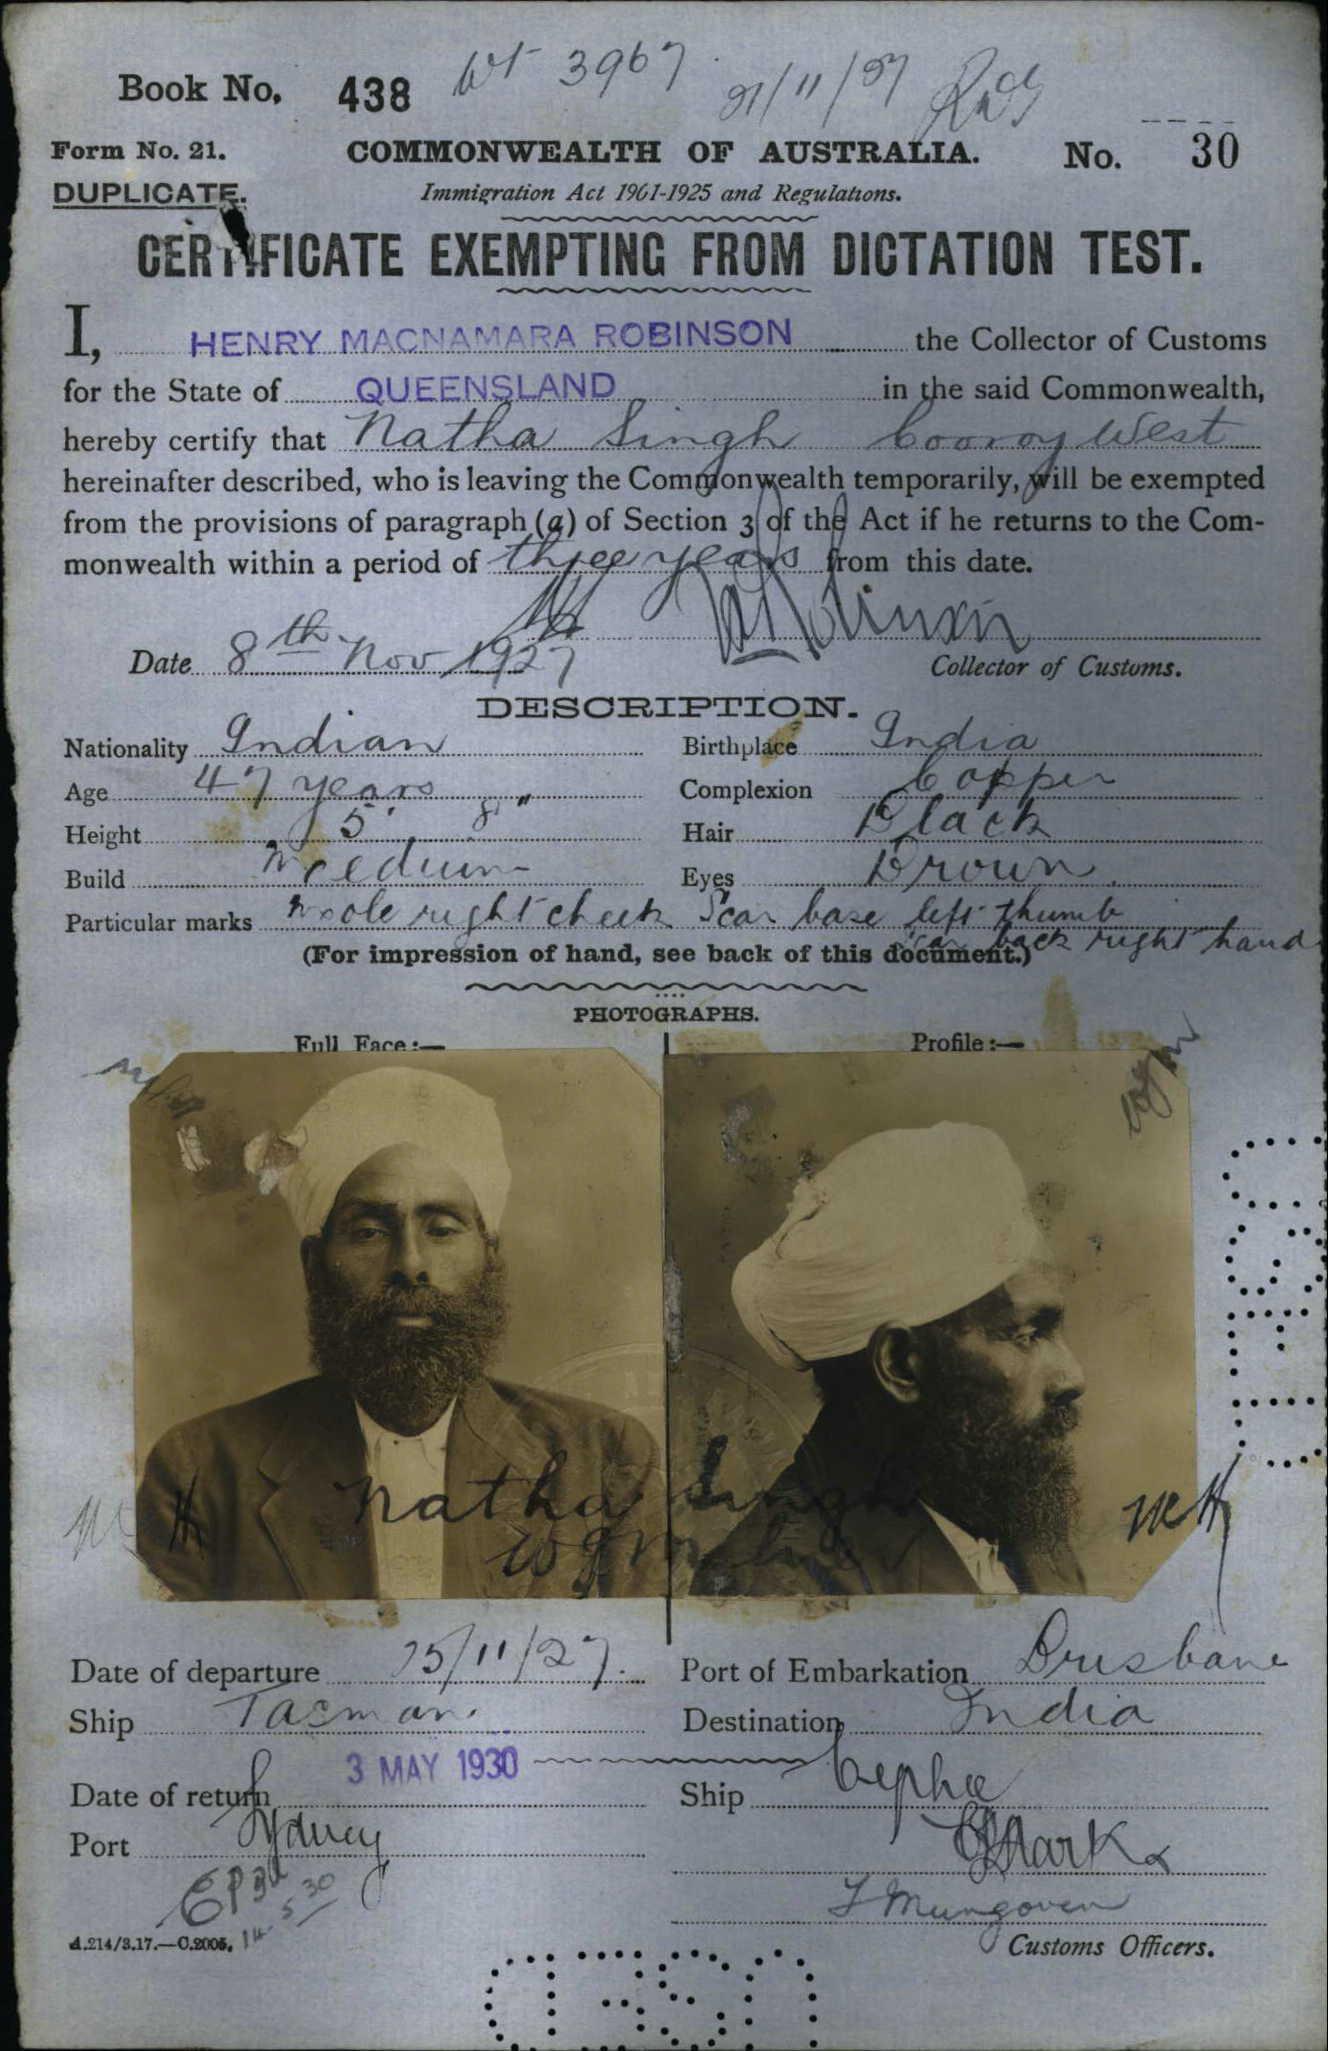 Book No. 438 3967
21/11/27
Form No. 21. COMMONWEALTH OF AUSTRALIA. No. 30
DUPLICATE. Immigration Act 1901-1925 and Regulations.
CERTIFICATE EXEMPTING FROM DICTATION TEST.
I, HENRY MACNAMARA ROBINSON the Collector of Customs
for the State of QUEENSLAND in the said Commonwealth,
hereby certify that Natha Singh Cooroy West
hereinafter described, who is leaving the Commonwealth temporarily, will be exempted
from the provisions of paragraph (a) of Section 3 of the Act if he returns to the Com-
monwealth within a period of three years from this date.
Date 8th Nov 1927
Collector of Customs.
DESCRIPTION.
Nationality Indian Birthplace India
Age 47 years Complexion Copper
Height 5' 8" Hair Black
Build Medium Eyes Brown
Particular marks Mole right cheek Scar base left thumb
scar back right hand
(For impression of hand, see back of this document.)
PHOTOGRAPHS.
Full Face :— Profile :—
Natha Singh
Date of departure 25/11/27. Port of Embarkation Brisbane
Ship Tasman. Destination India
Date of return 3 MAY 1930 Ship Cephee
Port Sydney
14 5 30
F Mungoven
A.214/3.17.—C.2005. Customs Officers.
USED